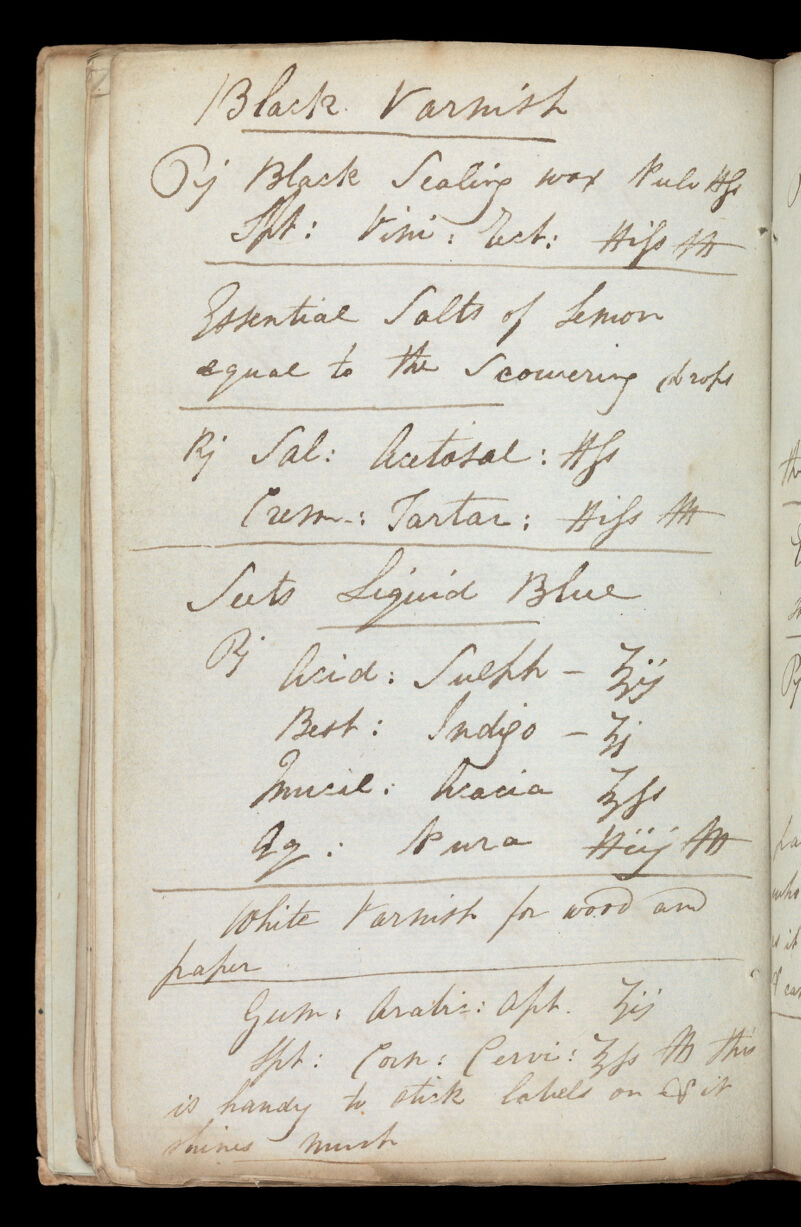 Black Varnish
Rj Black Sealing wax Pulv ℔ſs
Spt: Vini: Rect: ℔iſs M
Essential Salts of Lemon
equal to the Scowering drops
Rj Sal: Acetosal: ℔ſs
Crem: Tartar: ℔iſs M
Liquid Blue
Rj Acid: Sulph - ℥ij
Best: Indigo - ℥j
Mucil: Acacia ℥ſs
Aq: Pura ℔iij M
White Varnish for wood and
paper
Gum: Arabic: Opt. ℥ij
Spt: Corn: Cervi: ℥ſs M this
is handy to stick labels on & it
shines much